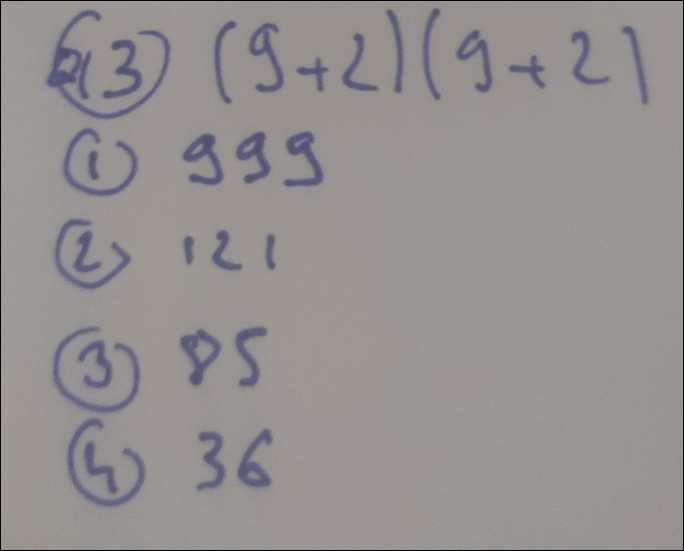 213 (9+2)(9+2)
1 999
2 121
3 85
4 36